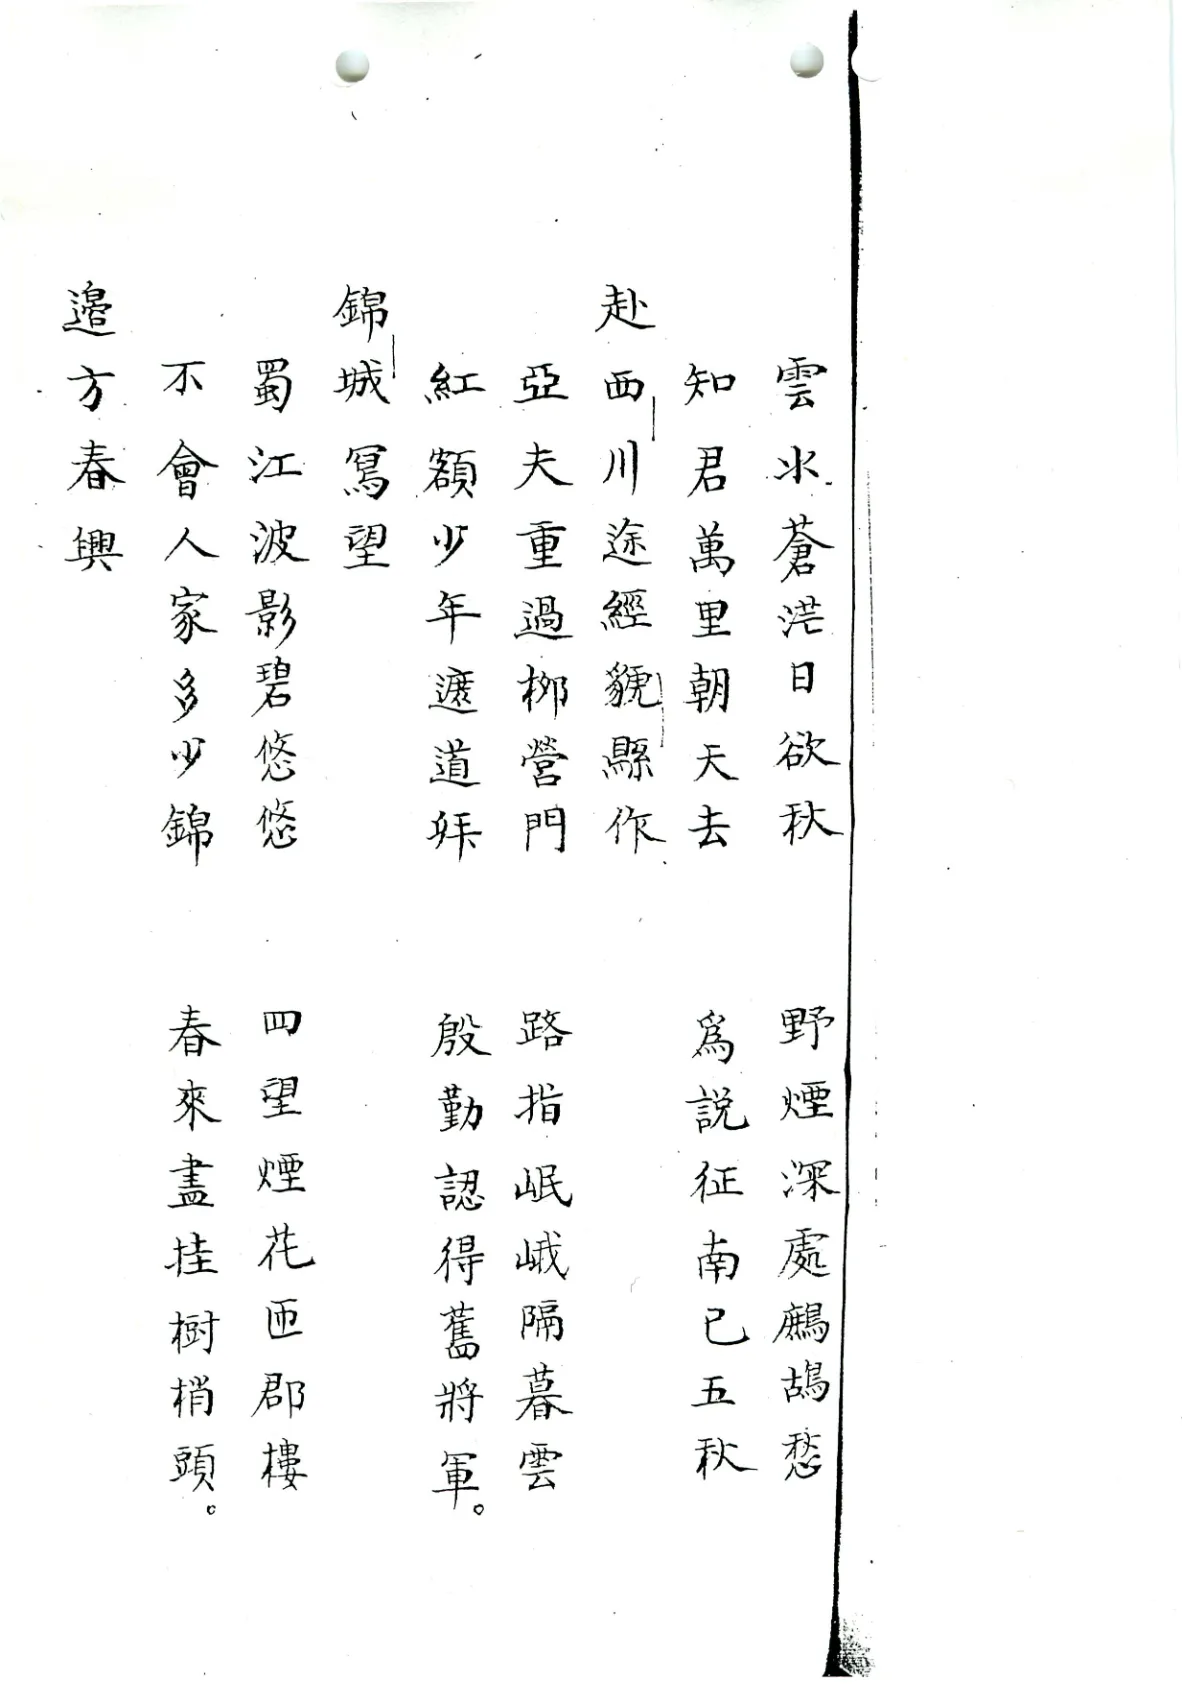 雲水蒼茫日欲秋　野煙深處鷓鴣愁
知君萬里朝天去　為説征南已五秋
赴西川途經虢縣作
亞夫重過栁營門　路指岷峨隔暮雲
紅額少年遮道拜　殷勤認得舊將軍。
錦城寫望
蜀江波影碧悠悠　四望煙花匝郡樓
不會人家多少錦　春來盡挂樹梢頭。
邉方春興